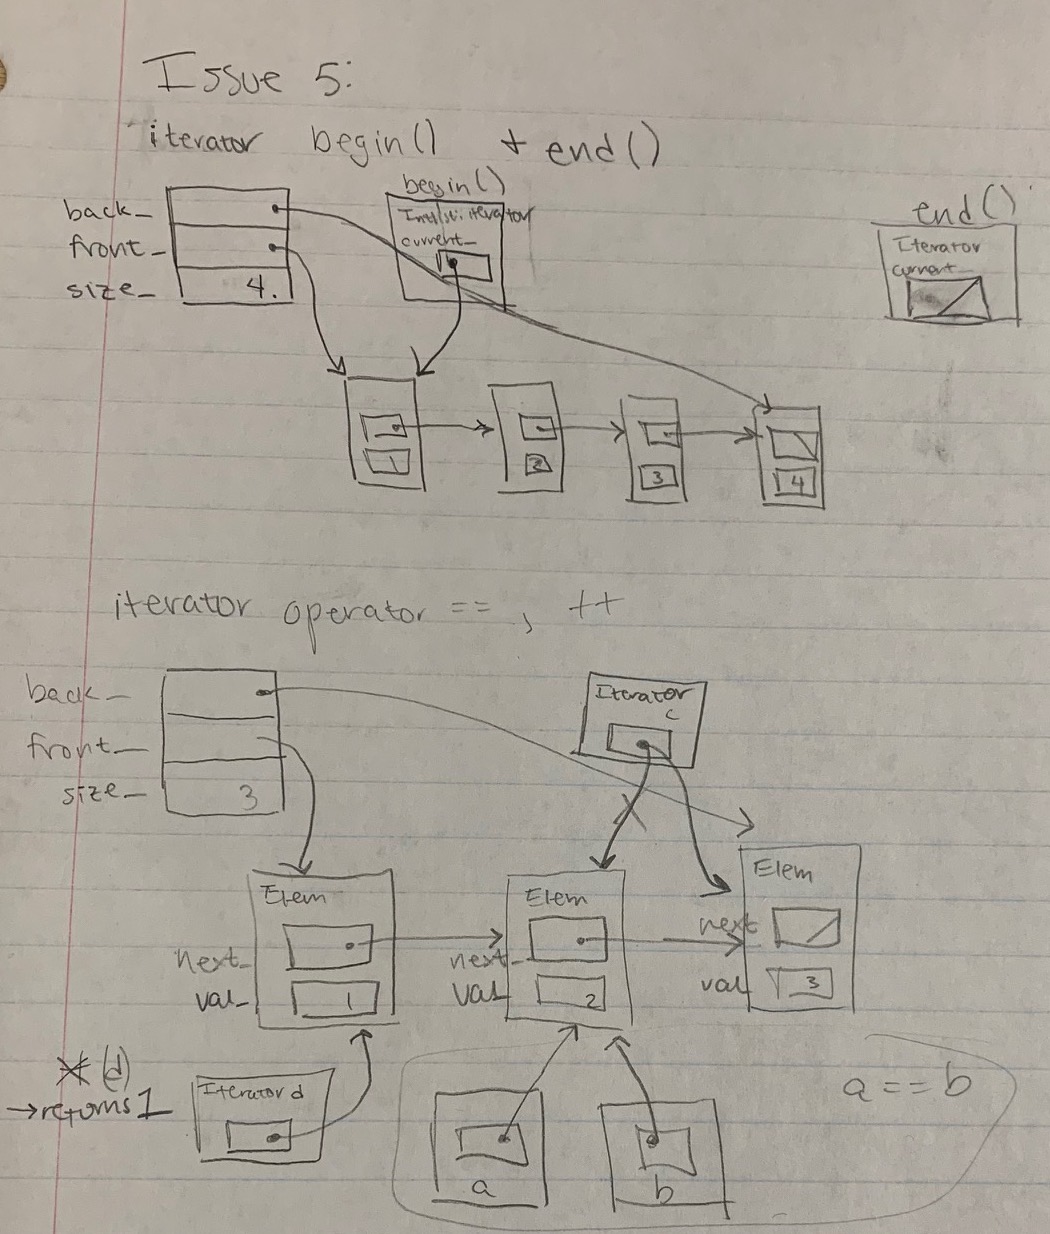 Issue 5:
iterator begin() + end()
begin()
back_
front_
size_ 4.
Intlist:iterator
current_
end()
Iterator
current_
1
2
3
4
iterator operator ==, ++
back_
front_
size_ 3
Iterator
c
Elem
next_
val_ 1
Elem
next_
val_ 2
Elem
next
val 3
*(d)
→returns 1
Iterator d
a
b
a == b